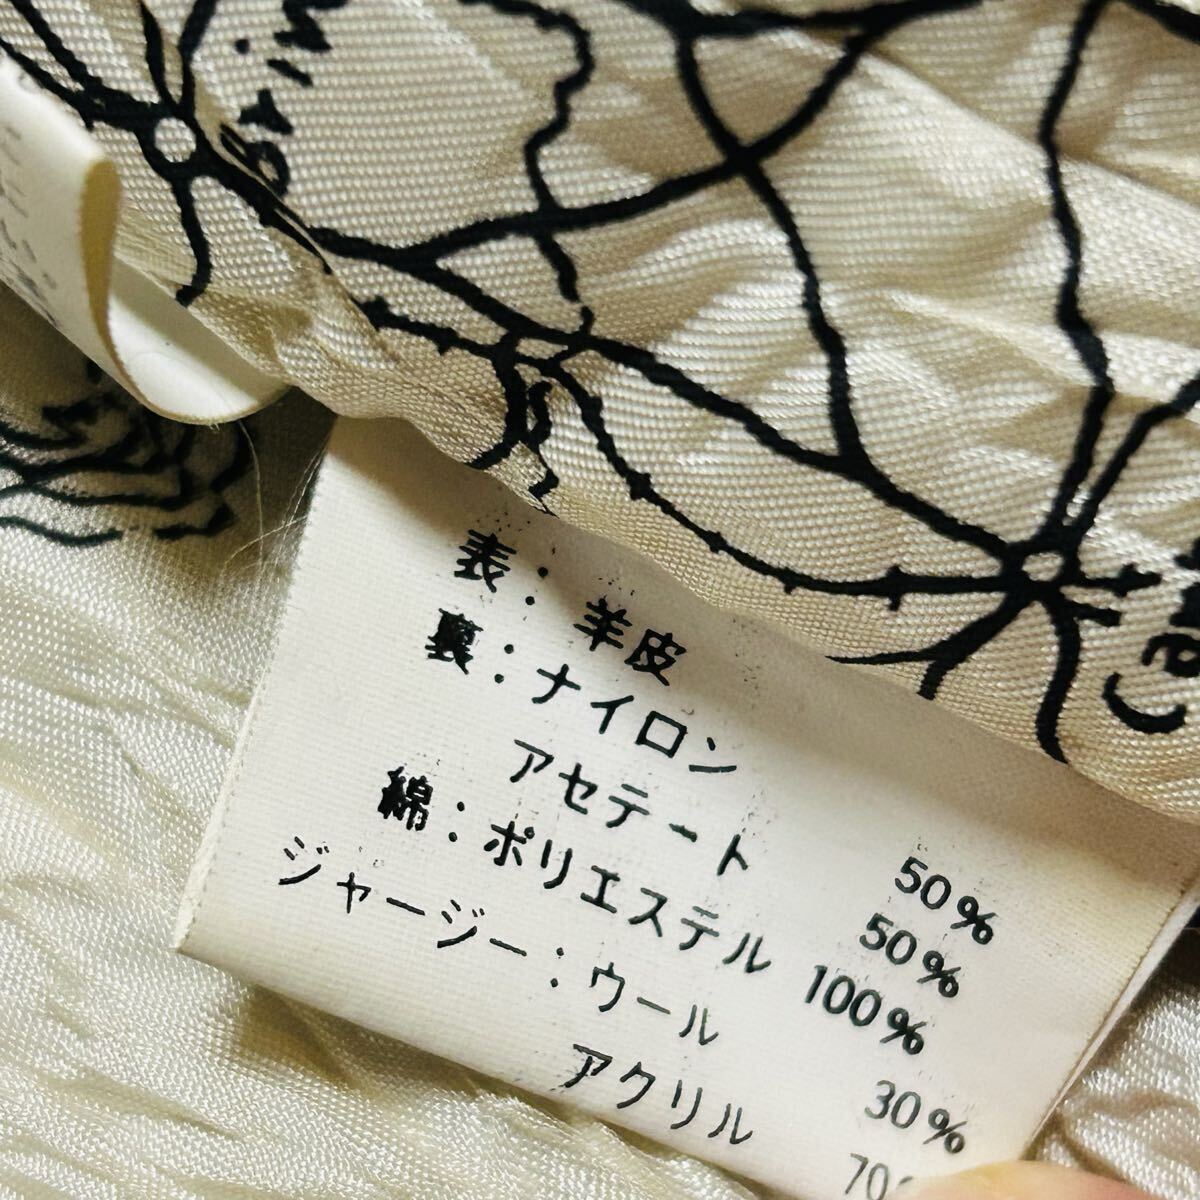 表：羊皮
裏：ナイロン 50%
アセテート 50%
綿：ポリエステル 100%
ジャージー：ウール 30%
アクリル 70